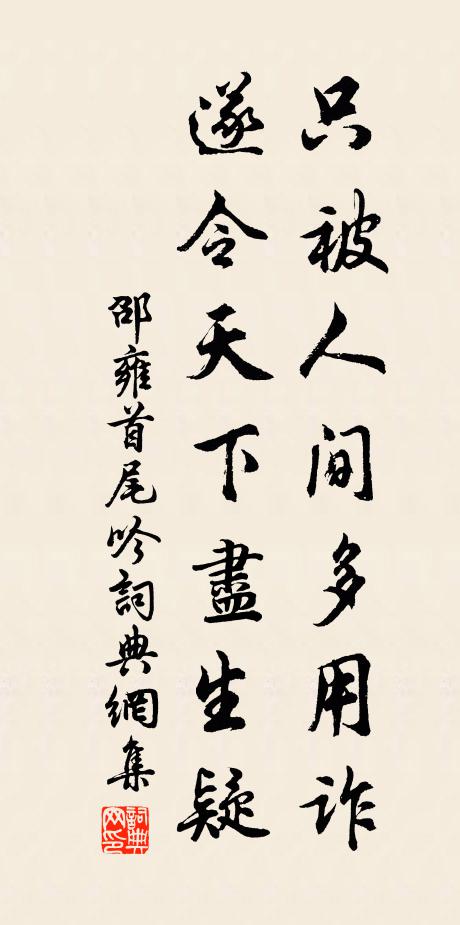 只被人間多用詐
遂令天下盡生疑
邵雍首尾吟詞典網集
詞典網印